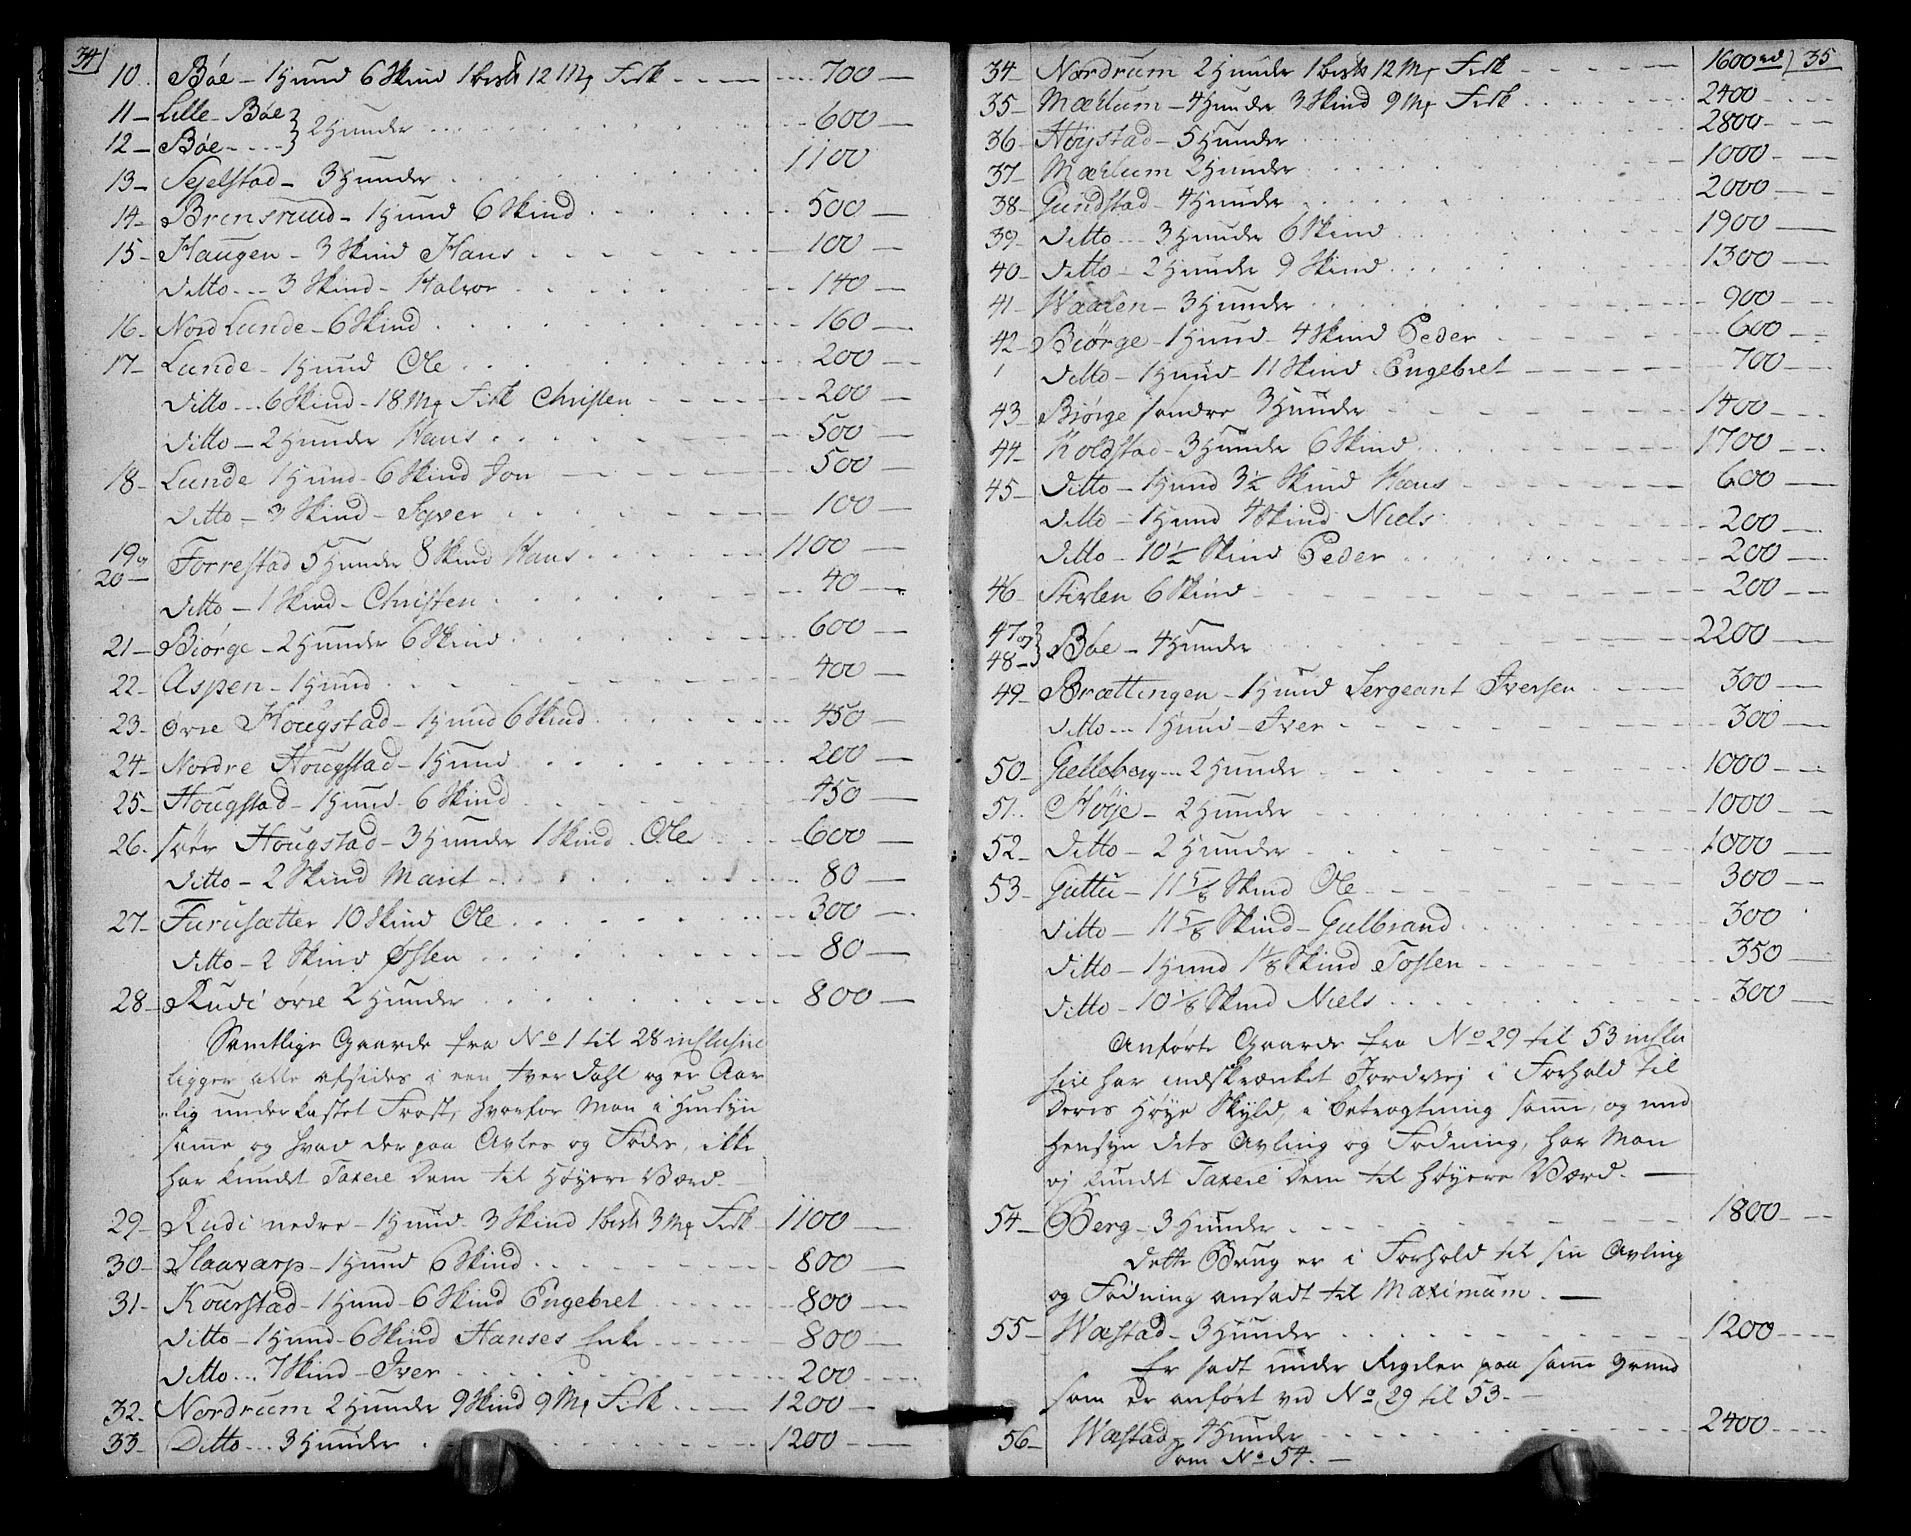 34
10. Bøe - 1 Hund 6 Skind 1 bisk 12 Mk Fisk - - - - .... 700 -
11 - Lille Bøe } 2 Hunder ... 600 -
12 - Bøe - - - -
13 - Sejelstad - 3 Hunder 1100
14 - Brensrund - 1 Hund 6 Skind 500 -
15 - Haugen - 3 Skind Hans 100 -
Ditto - - - 3 Skind - Halvor 140 -
16 - Nord Lunde - 6 Skind 160 -
17 - Lunde - 1 Hund Ole 200 -
Ditto - - - 6 Skind - 18 Mk Fisk Christen 200 -
Ditto - 2 Hunder Hans 500 -
18 - Lunde 1 Hund - 6 Skind Jon 500 -
Ditto - 3 Skind - Syver 100 -
19 og
20 - Forrestad 5 Hunder 8 Skind Hans 1100 -
Ditto - 1 Skind - Christen 40 -
21 - Biørge - 2 Hunder 6 Skind 600 -
22 - Aspen - 1 Hund 400 -
23 - øvre Hougstad - 1 Hund 6 Skind 450 -
24 - Nordre Hougstad - 1 Hund 200 -
25 - Hougstad - 1 Hund - 6 Skind 450 -
26. Søer Hougstad - 3 Hunder 1 Skind Ole 600 -
Ditto - 2 Skind Marit 80 -
27 - Furusætter 10 Skind Ole 300 -
Ditto - 2 Skind Østen 80 -
28 - Rudi øvre 2 Hunder 800 -
Samtlige Gaarde fra No 1 til 28 inclusive
ligger alle afsides i een tver Dahl og er Aar
lig underkastet Frost, hvorfor Man i Hensyn
same og hvad der paa Avles og Fødes, ikke
har kundet Taxere dem til Høyere Værd. -
29 - Rudi nedre - 1 Hund - 3 Skind 1 bisk 3 Mk Fisk - 1100 -
30 - Slaavarp - 1 Hund 6 Skind 800 -
31 - Kourstad - 1 Hund - 6 Skind Engebret 800 -
Ditto - 1 Hund - 6 Skind Hanses Enke 800 -
Ditto ... 7 Skind - Iver 200 -
32 - Nordrum 2 Hunder 9 Skind 9 Mk Fisk 1200 -
33 - Ditto ... 3 Hunder 1200 -
35
34 - Nordrum 2 Hunder 1 bisk 12 Mk Fisk 1600 rd
35 - Mæhlum - 4 Hunder 3 Skind 9 Mk Fisk 2400 -
36 - Høystad - 5 Hunder 2800 -
37 - Mæhlum 2 Hunder 1000 -
38 - Gundstad - 4 Hunder 2000 -
39 - Ditto ... 3 Hunder 6 Skind 1900 -
40 - Ditto - 2 Hunder 9 Skind 1300 -
41 - Waalen - 3 Hunder 900 -
42 - Biørge - 1 Hund - 4 Skind Peder 600 -
Ditto - 1 Hund - 11 Skind Engebret 700 -
43 - Biørge søndre 3 Hunder 1400 -
44 - Koldstad - 3 Hunder 6 Skind 1700 -
45 - Ditto - 1 Hund 3½ Skind Hans 600 -
Ditto - 1 Hund 4 Skind Niels 200 -
Ditto - 10½ Skind Peder 200 -
46 - Stirlen 6 Skind 200 -
47 og } Bøe - 4 Hunder 2200 -
48 -
49 - Brættingen - 1 Hund Sergeant Iversen 300 -
Ditto ... 1 Hund - Iver 300 -
50 - Gulleberg ... 2 Hunder 1000 -
51. Høye - 2 Hunder 1000 -
52 - Ditto - 2 Hunder 1000 -
53 - Guttu - 11 5/8 Skind Ole 300 -
Ditto - 11 5/8 Skind - Gulbrand 300
Ditto - 1 Hund 1 1/8 Skind Tosten 350 -
Ditto - 10 1/8 Skind Niels 300 -
Anførte Gaarde fra No 29 til 53 inclu
sive har indskrænket Jordvej i Forhold til
Deres Høye Skyld, i betragtning same, og med
hensyn dets Avling og Fødning, har Man
ej kundet Taxere dem til høyere Værd. -
54 - Berg - 3 Hunder 1800 -
Dette Brug er i Forhold til sin Avling
og Fødning ansadt til Maximum. -
55 - Wæstad - 3 Hunder 1200 -
Er sadt under Regelen paa same grund
som er anført ved No 29 til 53. -
56 - Wæstad - 4 Hunder 2400 -
Som No 54. -